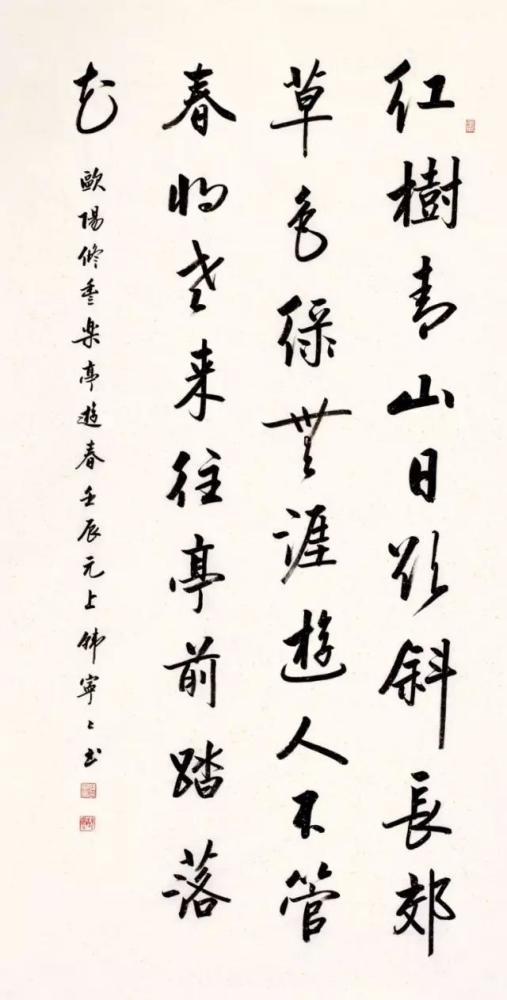 红樹青山日欲斜長郊
草色綠無涯遊人不管
春将老来往亭前踏落
花
歐陽修豊樂亭遊春壬辰元上韩寧〻书